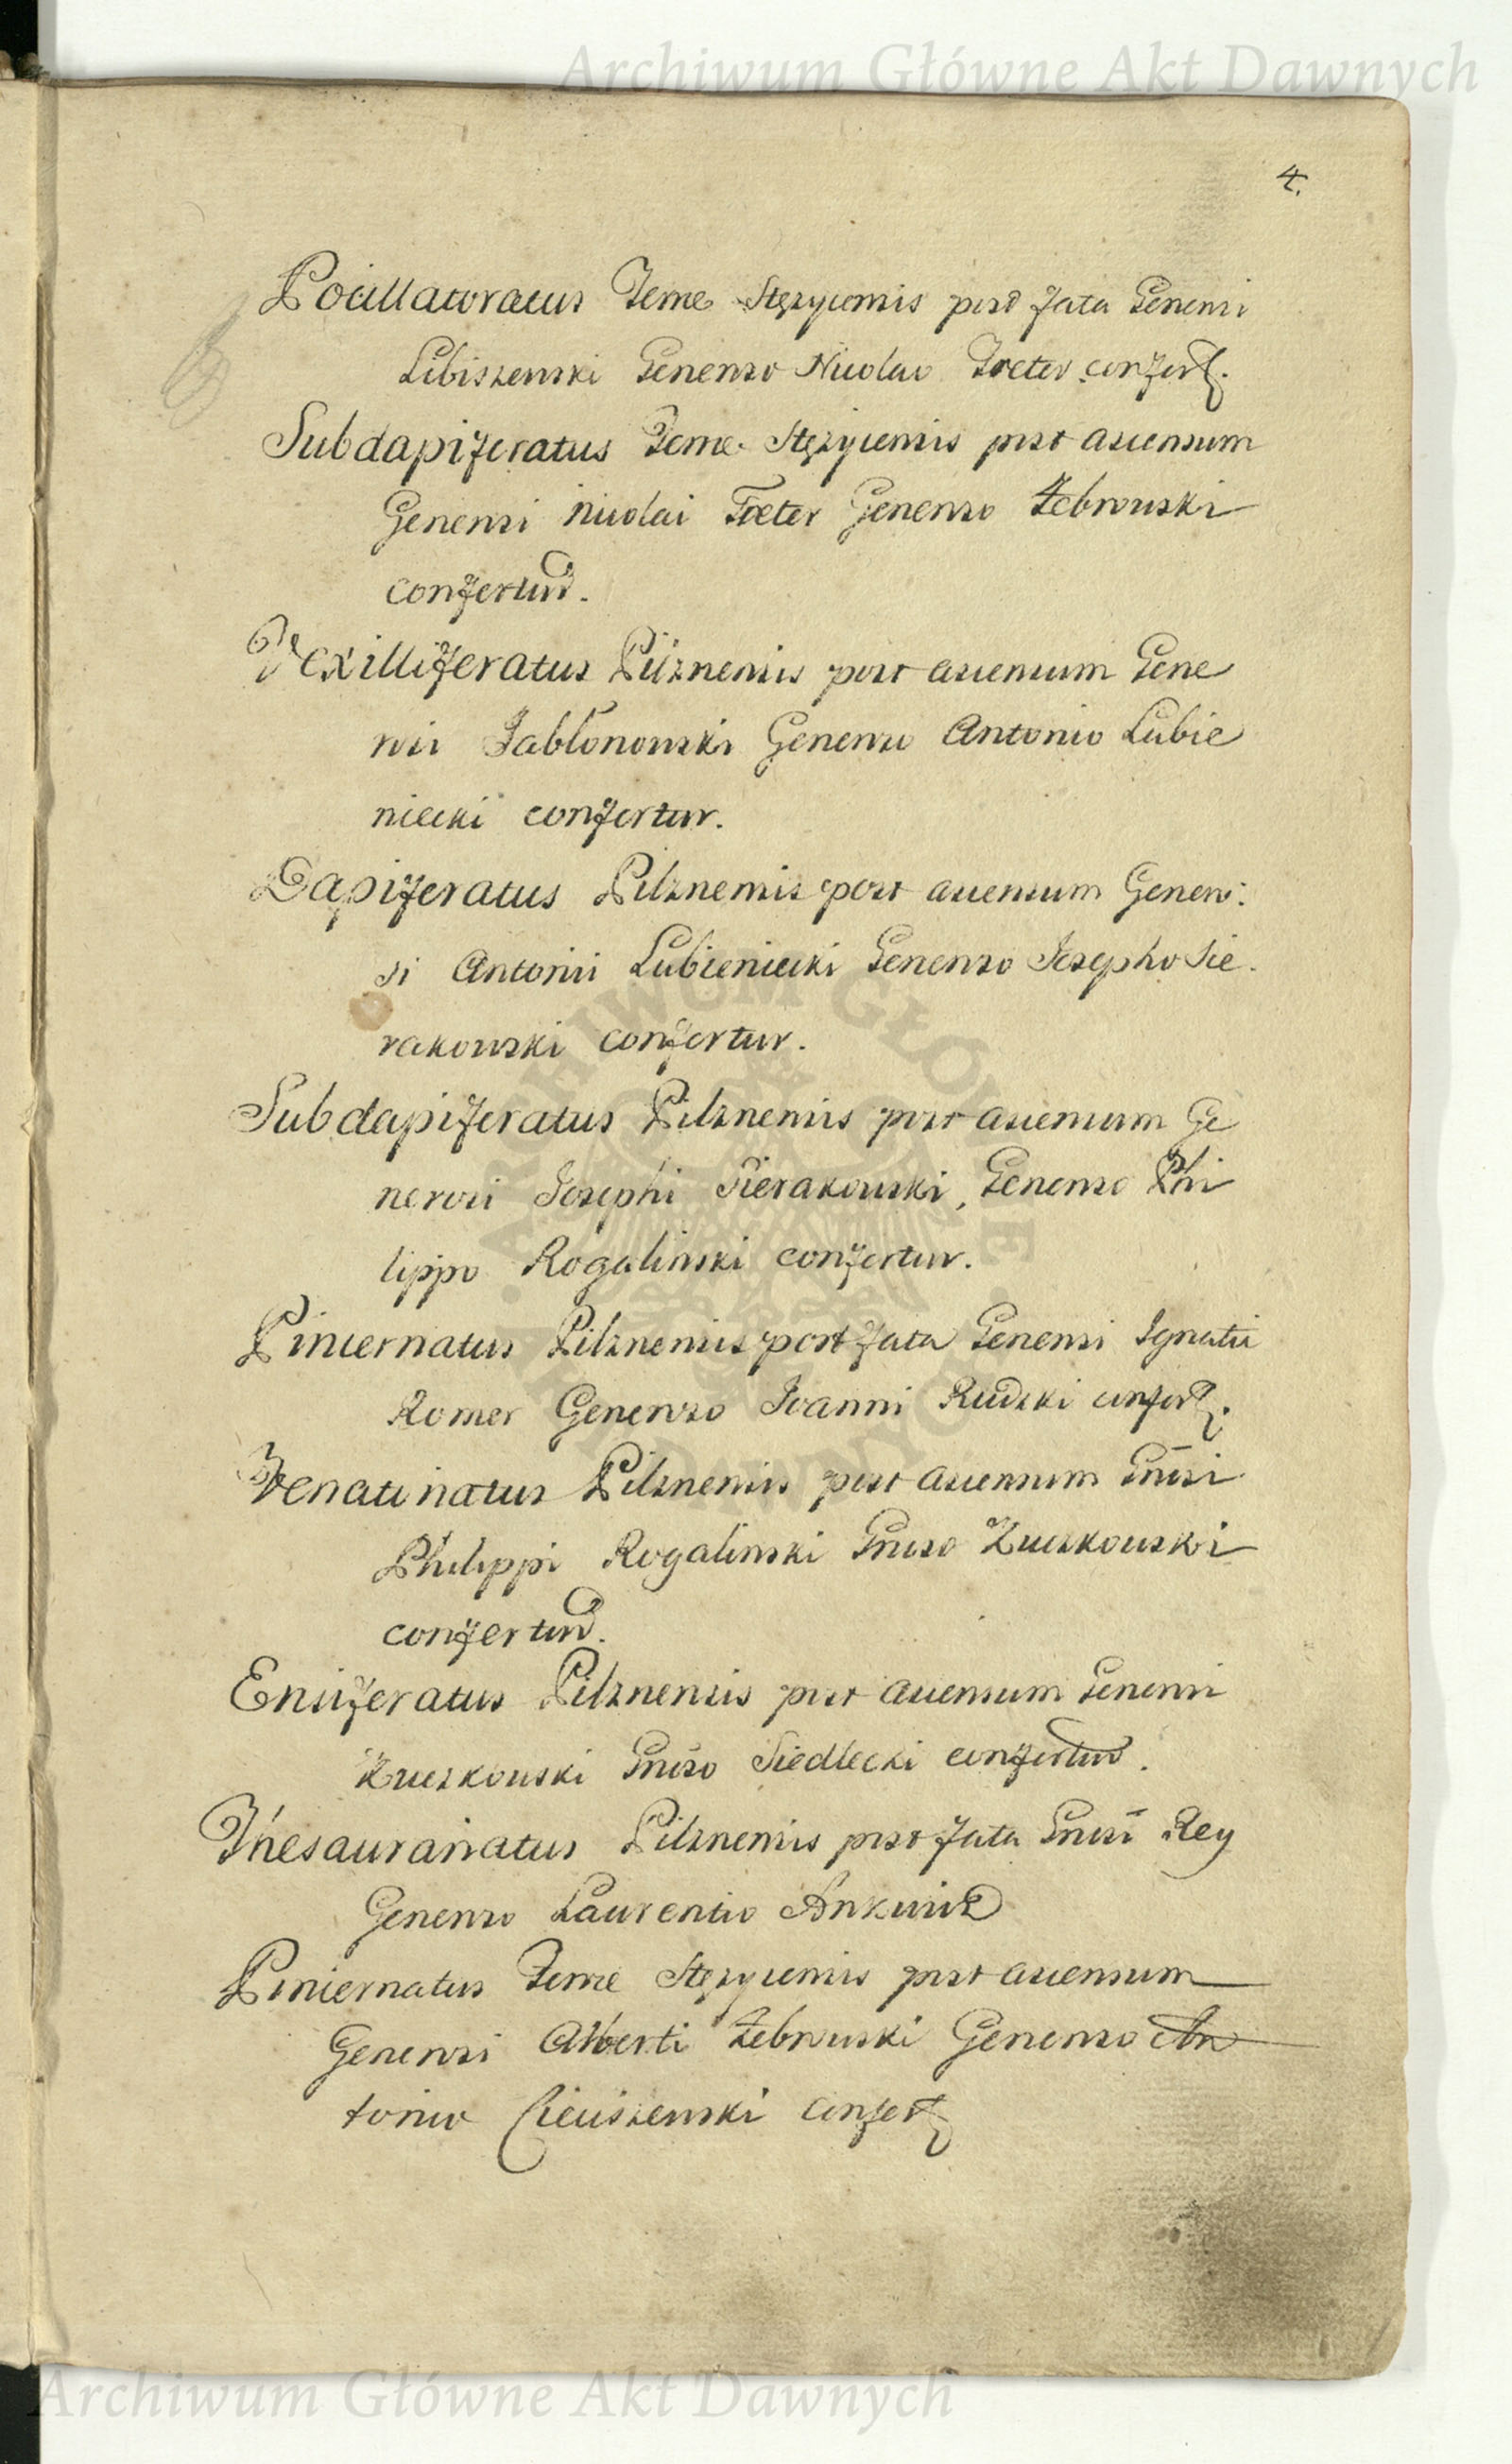 Archiwum Główne Akt Dawnych
4.
Pocillatoratus Terræ Stęzycensis post fata Generosi
Libiszewski Generoso Nicolao Treter confert.
Subdapiferatus Terræ Stęzycensis post ascensum
Generosi Nicolai Treter Generoso Żebrowski
confertur.
Vexilliferatus Pilznensis post ascensum Gene
rosi Jabłonowski Generoso Antonio Lubie
niecki confertur.
Dapiferatus Pilznensis post ascensum Genero:
si Antonii Lubieniecki Generoso Josepho Sie
rakowski confertur.
Subdapiferatus Pilznensis post ascensum Ge
nerosi Josephi Sierakowski, Generoso Phi
lippo Rogalinski confertur.
Pincernatus Pilznensis post fata Generosi Ignatii
Romer Generoso Joanni Rudzki confert.
Venatoriatus Pilznensis post ascensum Gnrosi
Philippi Rogalinski Gnroso Kuczkowski
confertur.
Ensiferatus Pilznensis post ascensum Generosi
Kuczkowski Gnroso Siedlecki confertur.
Thesaurariatus Pilznensis post fata Gnrosi Rey
Generoso Laurentio Ankwicz
Pincernatus Terræ Stęzycensis post ascensum
Generosi Alberti Żebrowski Generoso An
tonio Cieciszewski confert
Archiwum Główne Akt Dawnych